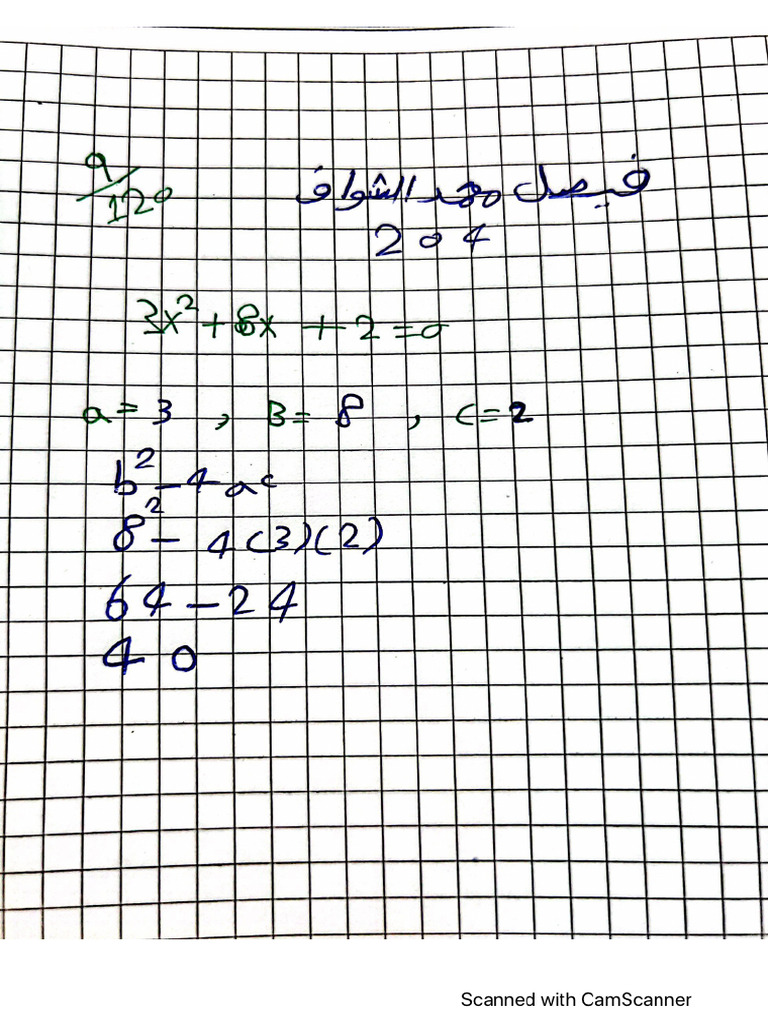 9/120
فيصل محمد الشواف
204
3x² + 8x + 2 = 0
a = 3 , B = 8 , C = 2
b² - 4ac
8² - 4(3)(2)
64 - 24
40
Scanned with CamScanner